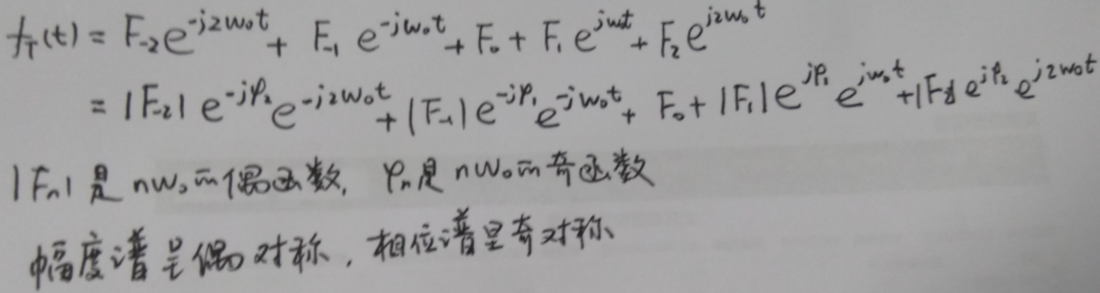 f_T(t) = F_{-2}e^{-j2w₀t} + F_{-1} e^{-jw₀t} + F₀ + F₁ e^{jw₀t} + F₂ e^{j2w₀t}
= |F_{-2}| e^{-jφ₂} e^{-j2w₀t} + |F_{-1}| e^{-jφ₁} e^{-jw₀t} + F₀ + |F₁| e^{jφ₁} e^{jw₀t} + |F₂| e^{jφ₂} e^{j2w₀t}
|Fₙ| 是 nw₀的偶函数, φₙ是 nw₀的奇函数
幅度谱呈偶对称, 相位谱呈奇对称